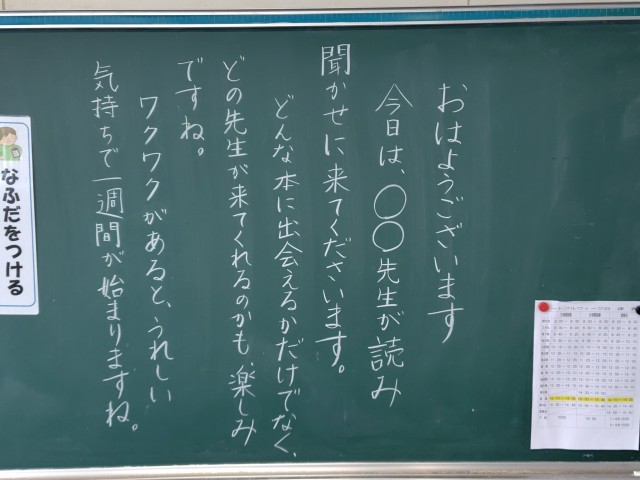 おはようございます
今日は、〇〇先生が読み
聞かせに来てくださいます。
どんな本に出会えるかだけでなく、
どの先生が来てくれるのかも楽しみ
ですね。
ワクワクがあると、うれしい
気持ちで一週間が始まりますね。
なふだをつける